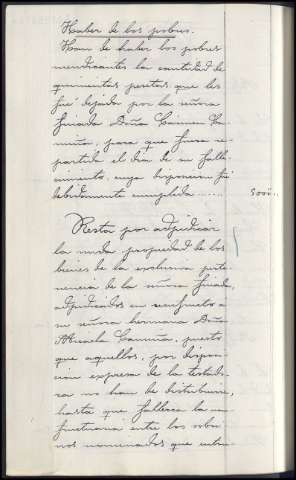 Haber de los pobres.
Han de haber los pobres
mendicantes la cantidad de
quinientas pesetas, que les
fué dejada por la señora
finada Doña Carmen Ca-
muña, para que fuera re-
partida el dia de su falle-
cimiento, cuya disposicion fué
debidamente cumplida
Resta por adjudicar
la nuda propiedad de los
bienes de la exclusiva perte-
nencia de la señora finada,
adjudicados en usufructo á
su señora hermana Doña
Micaela Camuña, puesto
que aquellos, por disposi-
cion expresa de la testado-
ra no han de distribuirse,
hasta que fallezca la usu-
fructuaria entre los sobri-
nos nominados que